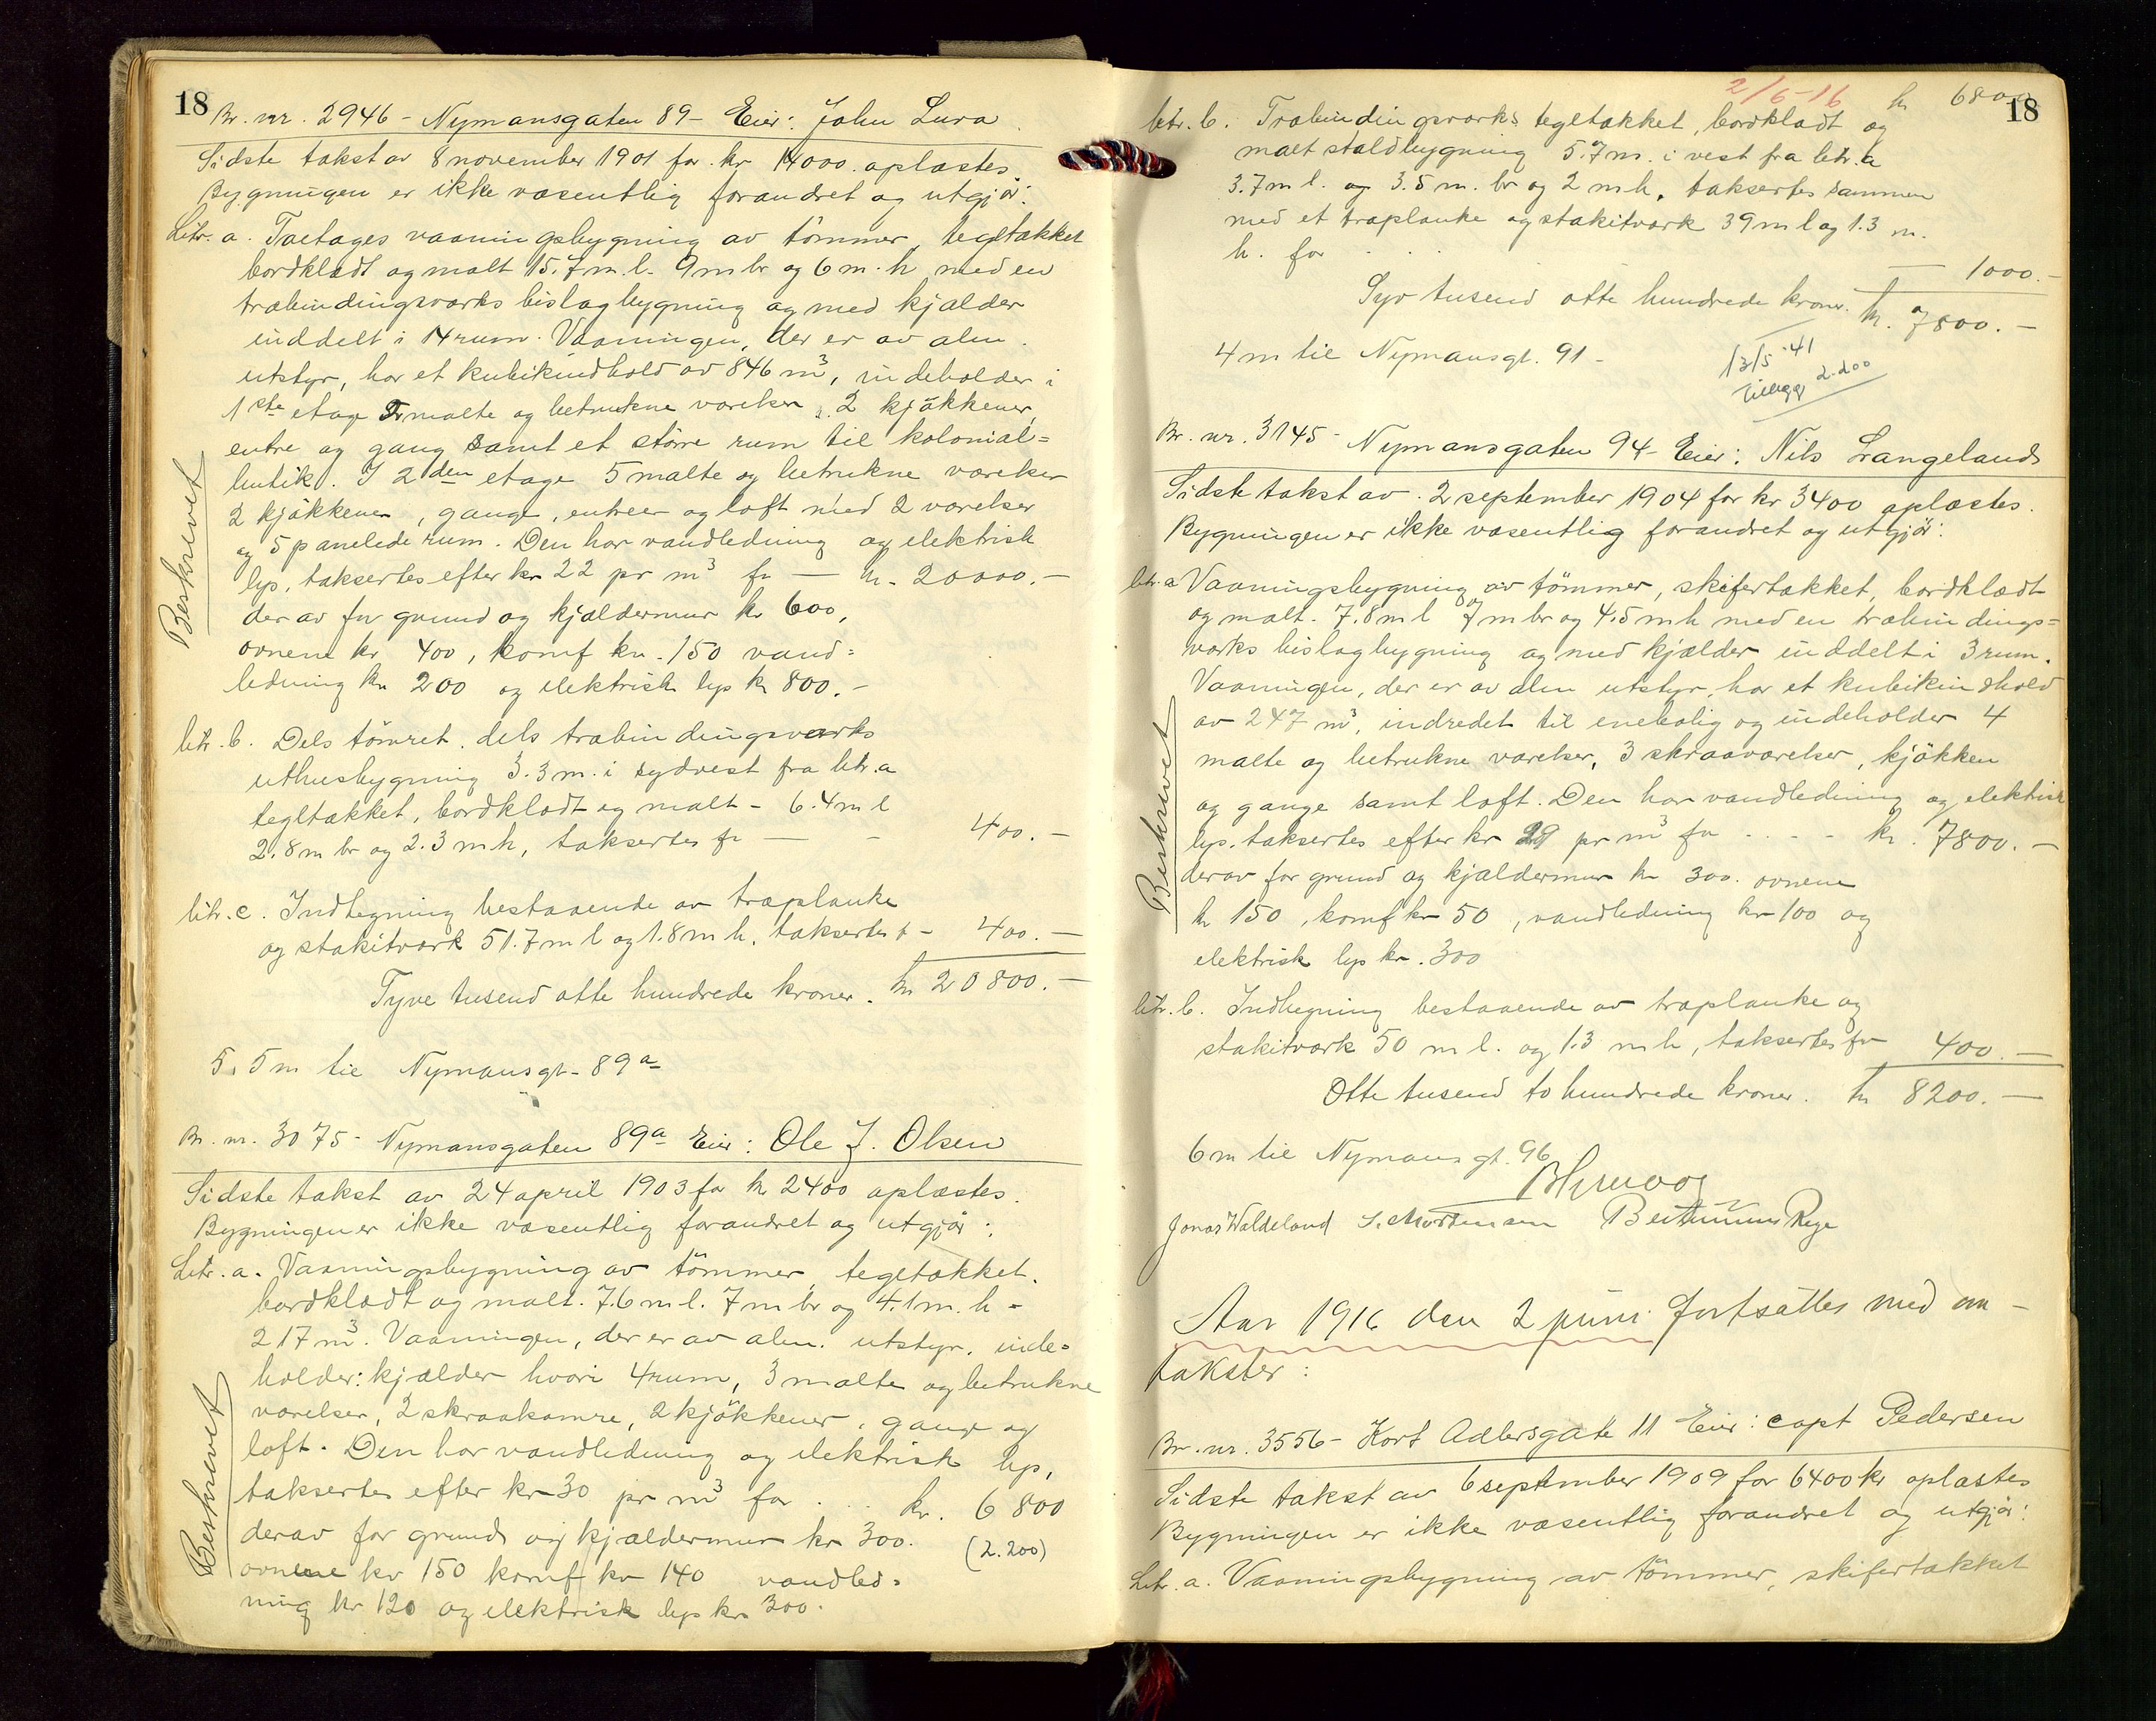 18
Br. nr. 2946 - Nymansgaten 89 - Eier: John Lura
Sidste takst av 8 november 1901 for kr 14000 oplæstes.
Bygningen er ikke væsentlig forandret og utgjør:
Litr. a. Toetages vaaningsbygning av tømmer, tegltækket
bordklædt og malt 15.7 m. l. 9 m br og 6 m. h med en
træbindingsværks bislagbygning og med kjælder
inddelt i 14 rum. Vaaningen, der er av alm.
utstyr, har et kubikindhold av 846 m³, indeholder i
1ste etage malte og betrukne værelser, 2 kjøkkener,
entre og gang samt et større rum til kolonial=
butik. I 2den etage 5 malte og betrukne værelser
2 kjøkkener, gange, entreer og loft med 2 værelser
og 5 panelede rum. Den har vandledning og elektrisk
lys, taksertes efter kr 22 pr m³ for — kr. 20000.—
derav for grund og kjældermur kr 600,
ovnene kr 400, komf kr. 150 vand=
ledning kr 200 og elektrisk lys kr 800.—
Beskrevet
litr. b. Dels tømret, dels træbindingsværks
uthusbygning 3.3 m. i sydvest fra litr. a
tegltækket, bordklædt og malt - 6.4 m l
2.8 m br og 2.3 m h, taksertes for — - 400.—
litr. c. Indhegning bestaaende av træplanke
og stakitværk 51.7 m l og 1.8 m h, taksertes f - 400.—
Tyve tusend otte hundrede kroner. kr 20800.—
5.5 m til Nymansgt. 89a
Br. nr. 3075 - Nymansgaten 89a Eier: Ole J. Olsen
Sidste takst av 24 april 1903 for kr 2400 oplæstes.
Bygningen er ikke væsentlig forandret og utgjør:
Litr. a. Vaaningsbygning av tømmer, tegltækket,
bordklædt og malt. 7.6 m l. 7 m br og 4.1 m. h =
217 m³. Vaaningen, der er av alm. utstyr, inde=
holder: kjælder hvori 4 rum, 3 malte og betrukne
værelser, 2 skraakamre, 2 kjøkkener, gange og
loft. Den har vandledning og elektrisk lys,
taksertes efter kr 30 pr m³ for . . . kr. 6 800
derav for grund og kjældermur kr 300. (2.200)
ovnene kr 150 komf kr 140 vandled=
ning kr 120 og elektrisk lys kr 300.
Beskrevet
2/6-16 kr 6800
18
litr. b. Træbindingsværks tegltækket, bordklædt og
malt staldbygning 5.7 m. i vest fra litr. a
3.7 m l. og 3.5 m. br og 2 m h, taksertes sammen
med et træplanke og stakitværk 39 m l og 1.3 m.
h. for . . . — 1000.—
Syv tusend otte hundrede kroner. kr. 7800.—
4 m til Nymansgt. 91 -
13/5-41
Tillegg 2.200
Br. nr. 3145 - Nymansgaten 94 - Eier: Nils Langeland
Sidste takst av 2 september 1904 for kr 3400 oplæstes.
Bygningen er ikke væsentlig forandret og utgjør:
litr. a Vaaningsbygning av tømmer, skifertækket, bordklædt
og malt. 7.8 m l 7 m br og 4.5 m h med en træbindings=
værks bislagbygning og med kjælder inddelt i 3 rum.
Vaaningen, der er av alm utstyr, har et kubikindhold
av 247 m³, indredet til enebolig og indeholder 4
malte og betrukne værelser, 3 skraaværelser, kjøkken
og gange samt loft. Den har vandledning og elektrisk
lys, taksertes efter kr 29 pr m³ for . . . - kr. 7800.—
derav for grund og kjældermur kr 300. ovnene
kr 150, komf kr 50, vandledning kr 100 og
elektrisk lys kr. 300
Beskrevet
litr. b. Indhegning bestaaende av træplanke og
stakitværk 50 m l. og 1.3 m h, taksertes for 400.—
Otte tusend to hundrede kroner. kr 8200.—
6 m til Nymansgt. 96
Jonas Waldeland S. Mortensen Rege
Aar 1916 den 2 juni fortsattes med om-
takster:
Br. nr. 3556 - Kort Adlersgate 11 Eier: capt Pedersen
Sidste takst av 6 september 1909 for 6400 kr oplæstes
Bygningen er ikke væsentlig forandret og utgjør:
Litr. a. Vaaningsbygning av tømmer, skifertækket